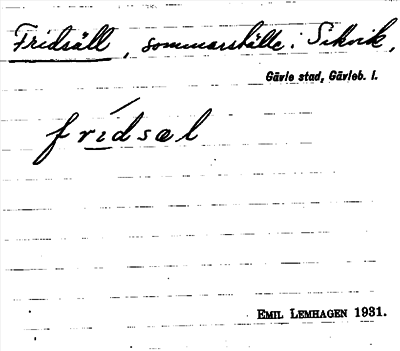 Fridsäll, sommarställe i Sikvik,
Gävle stad, Gävleb. l.
frídsæl
EMIL LEMHAGEN 1931.